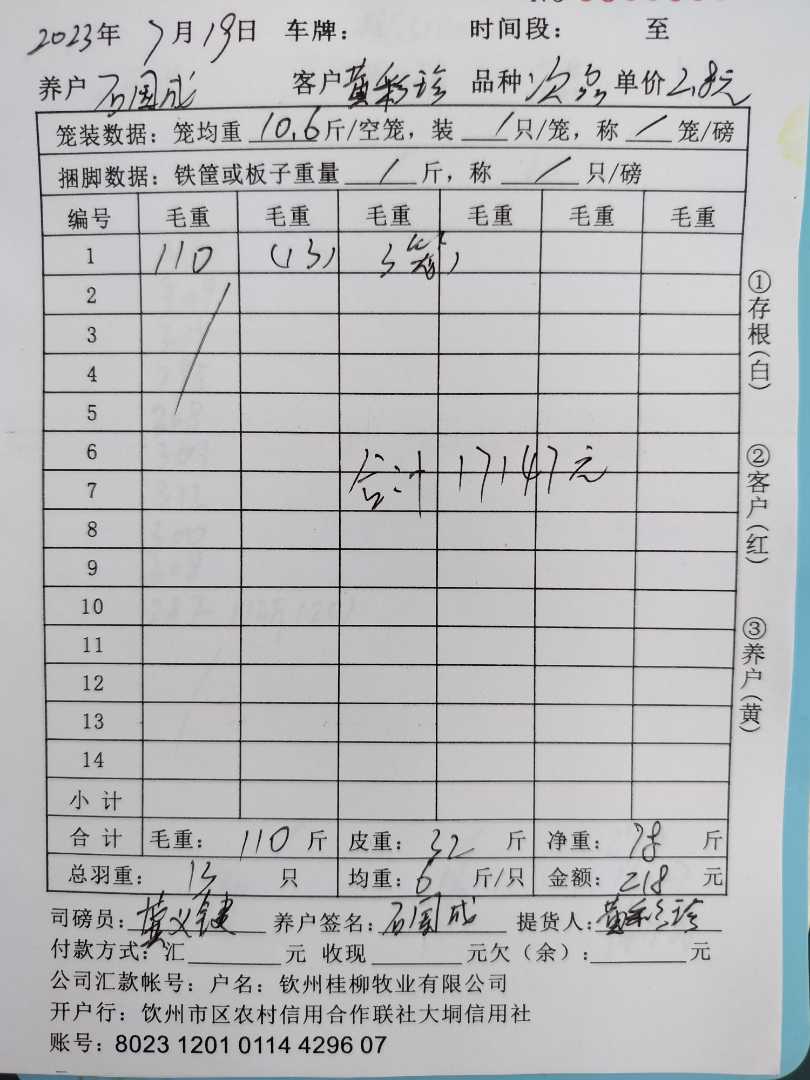 2023年 7月19日 车牌： 时间段： 至
养户 石周成 客户 黄彩珍 品种：次品 单价 2.8元
笼装数据：笼均重 10.6 斤/空笼，装 / 只/笼，称 / 笼/磅
捆脚数据：铁筐或板子重量 / 斤，称 / 只/磅
编号 毛重 毛重 毛重 毛重 毛重 毛重
1 110 (13) 3笼
2
3
4
5
6
7
合计 17147元
8
9
10
11
12
13
14
小 计
合 计 毛重： 110 斤 皮重： 32 斤 净重： 78 斤
总羽重： 13 只 均重： 6 斤/只 金额： 218 元
司磅员： 黄义健 养户签名： 石周成 提货人： 黄彩珍
付款方式：汇 元 收现 元欠（余）： 元
公司汇款帐号：户名：钦州桂柳牧业有限公司
开户行：钦州市区农村信用合作联社大垌信用社
账号：8023 1201 0114 4296 07
①存根(白)
②客户(红)
③养户(黄)